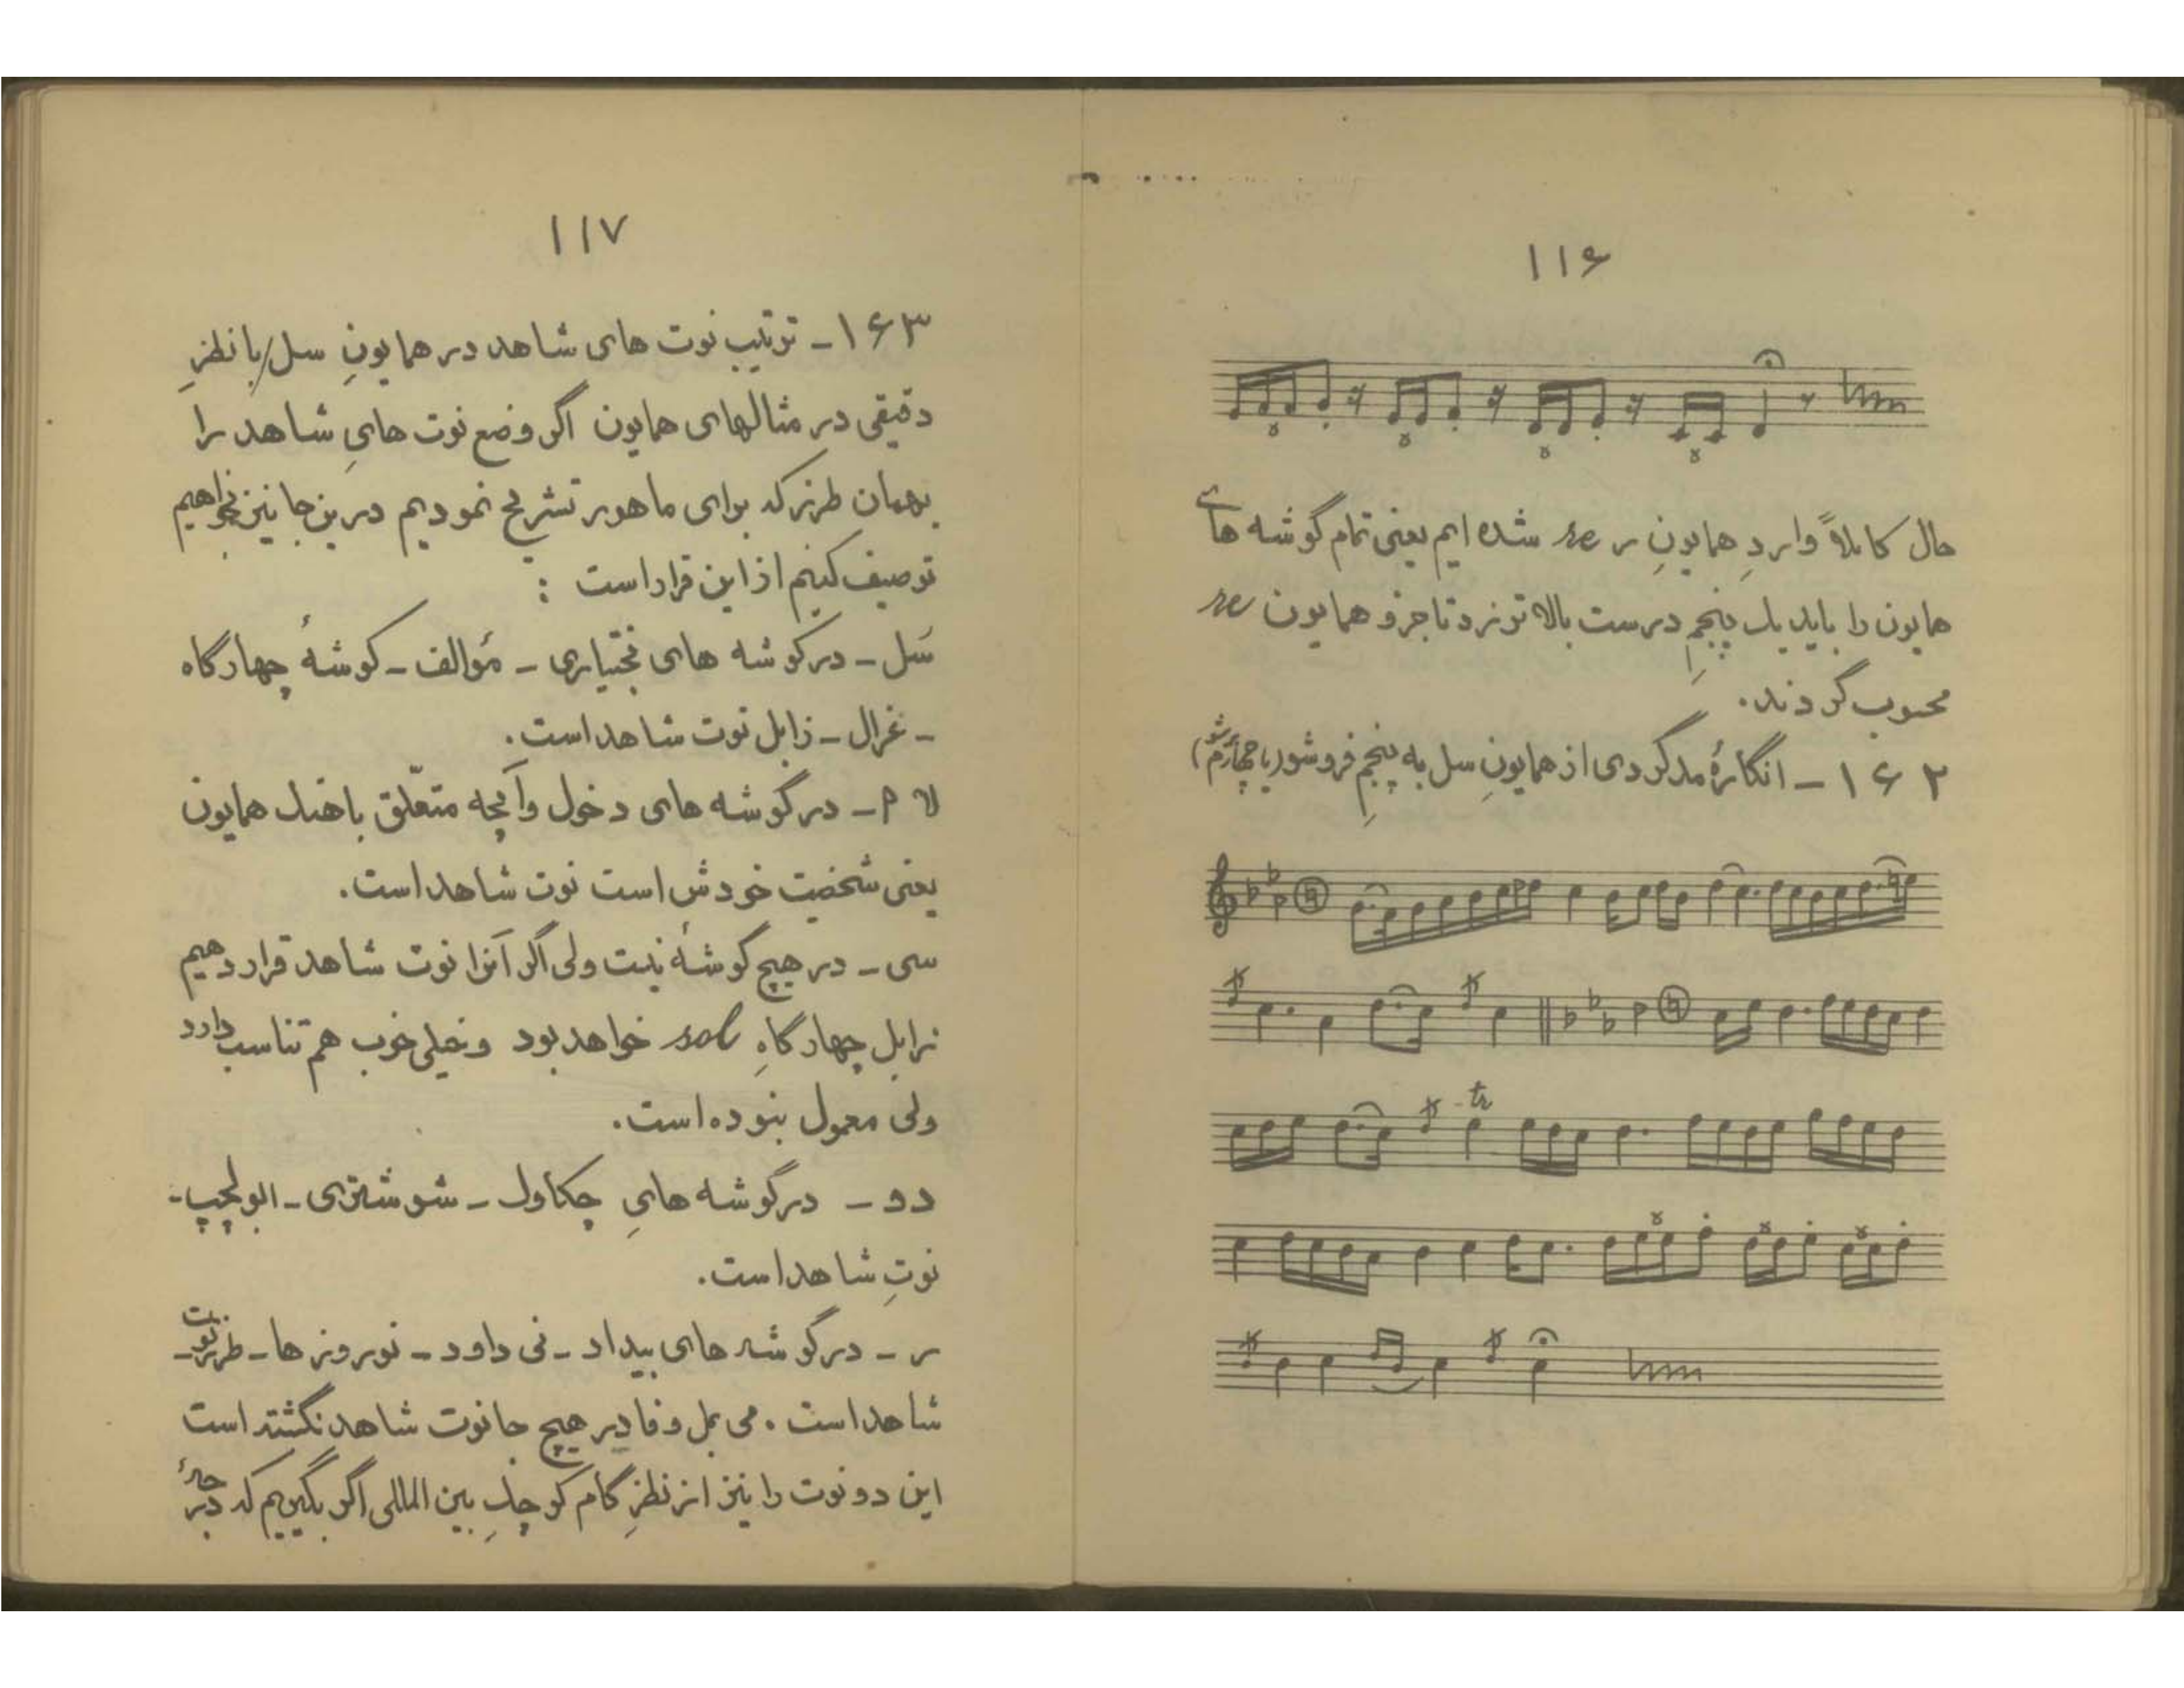 ۱۱۶
حال کاملاً واردِ همایونِ ر re شده ایم یعنی تمام گوشه های
همایون را باید یک پنجمِ درست بالا تر زد تا جزو همایون re
محسوب گردند.
۱۶۲ - انگارهٔ مدگردی از همایونِ سل به پنجمِ فروشو (یا چهارم
۱۱۷
۱۶۳ - ترتیب نوت های شاهد در همایونِ سل / با نظرِ
دقیقی در مثالهای همایون اگر وضع نوت هایِ شاهد را
بهمان طرز که برای ماهور تشریح نمودیم درین جا نیز بخواهیم
توصیف کنیم از این قرار است :
سُل - در گوشه های بختیاری - مؤالف - گوشهٔ چهارگاه
- غزال - زابل نوت شاهد است.
لا م - در گوشه های دخول و آنچه متعلّق باهنگ همایون
یعنی شخصیت خودش است نوت شاهد است.
سی - در هیچ گوشهٔ نیست ولی اگر آنرا نوت شاهد قرار دهیم
زابل چهارگاهِ sol خواهد بود و خیلی خوب هم تناسب دارد
ولی معمول نبوده است.
دو - در گوشه هایِ چکاوک - شوشتری - ابولچپ -
نوتِ شاهد است.
ر - در گوشه های بیداد - نی داود - نوروز ها - طرز نوت
شاهد است . می بمل و فا در هیچ جا نوت شاهد نگشته است
این دو نوت را نیز از نظرِ گام کوچکِ بین المللی اگر بگیریم که درجهٔ